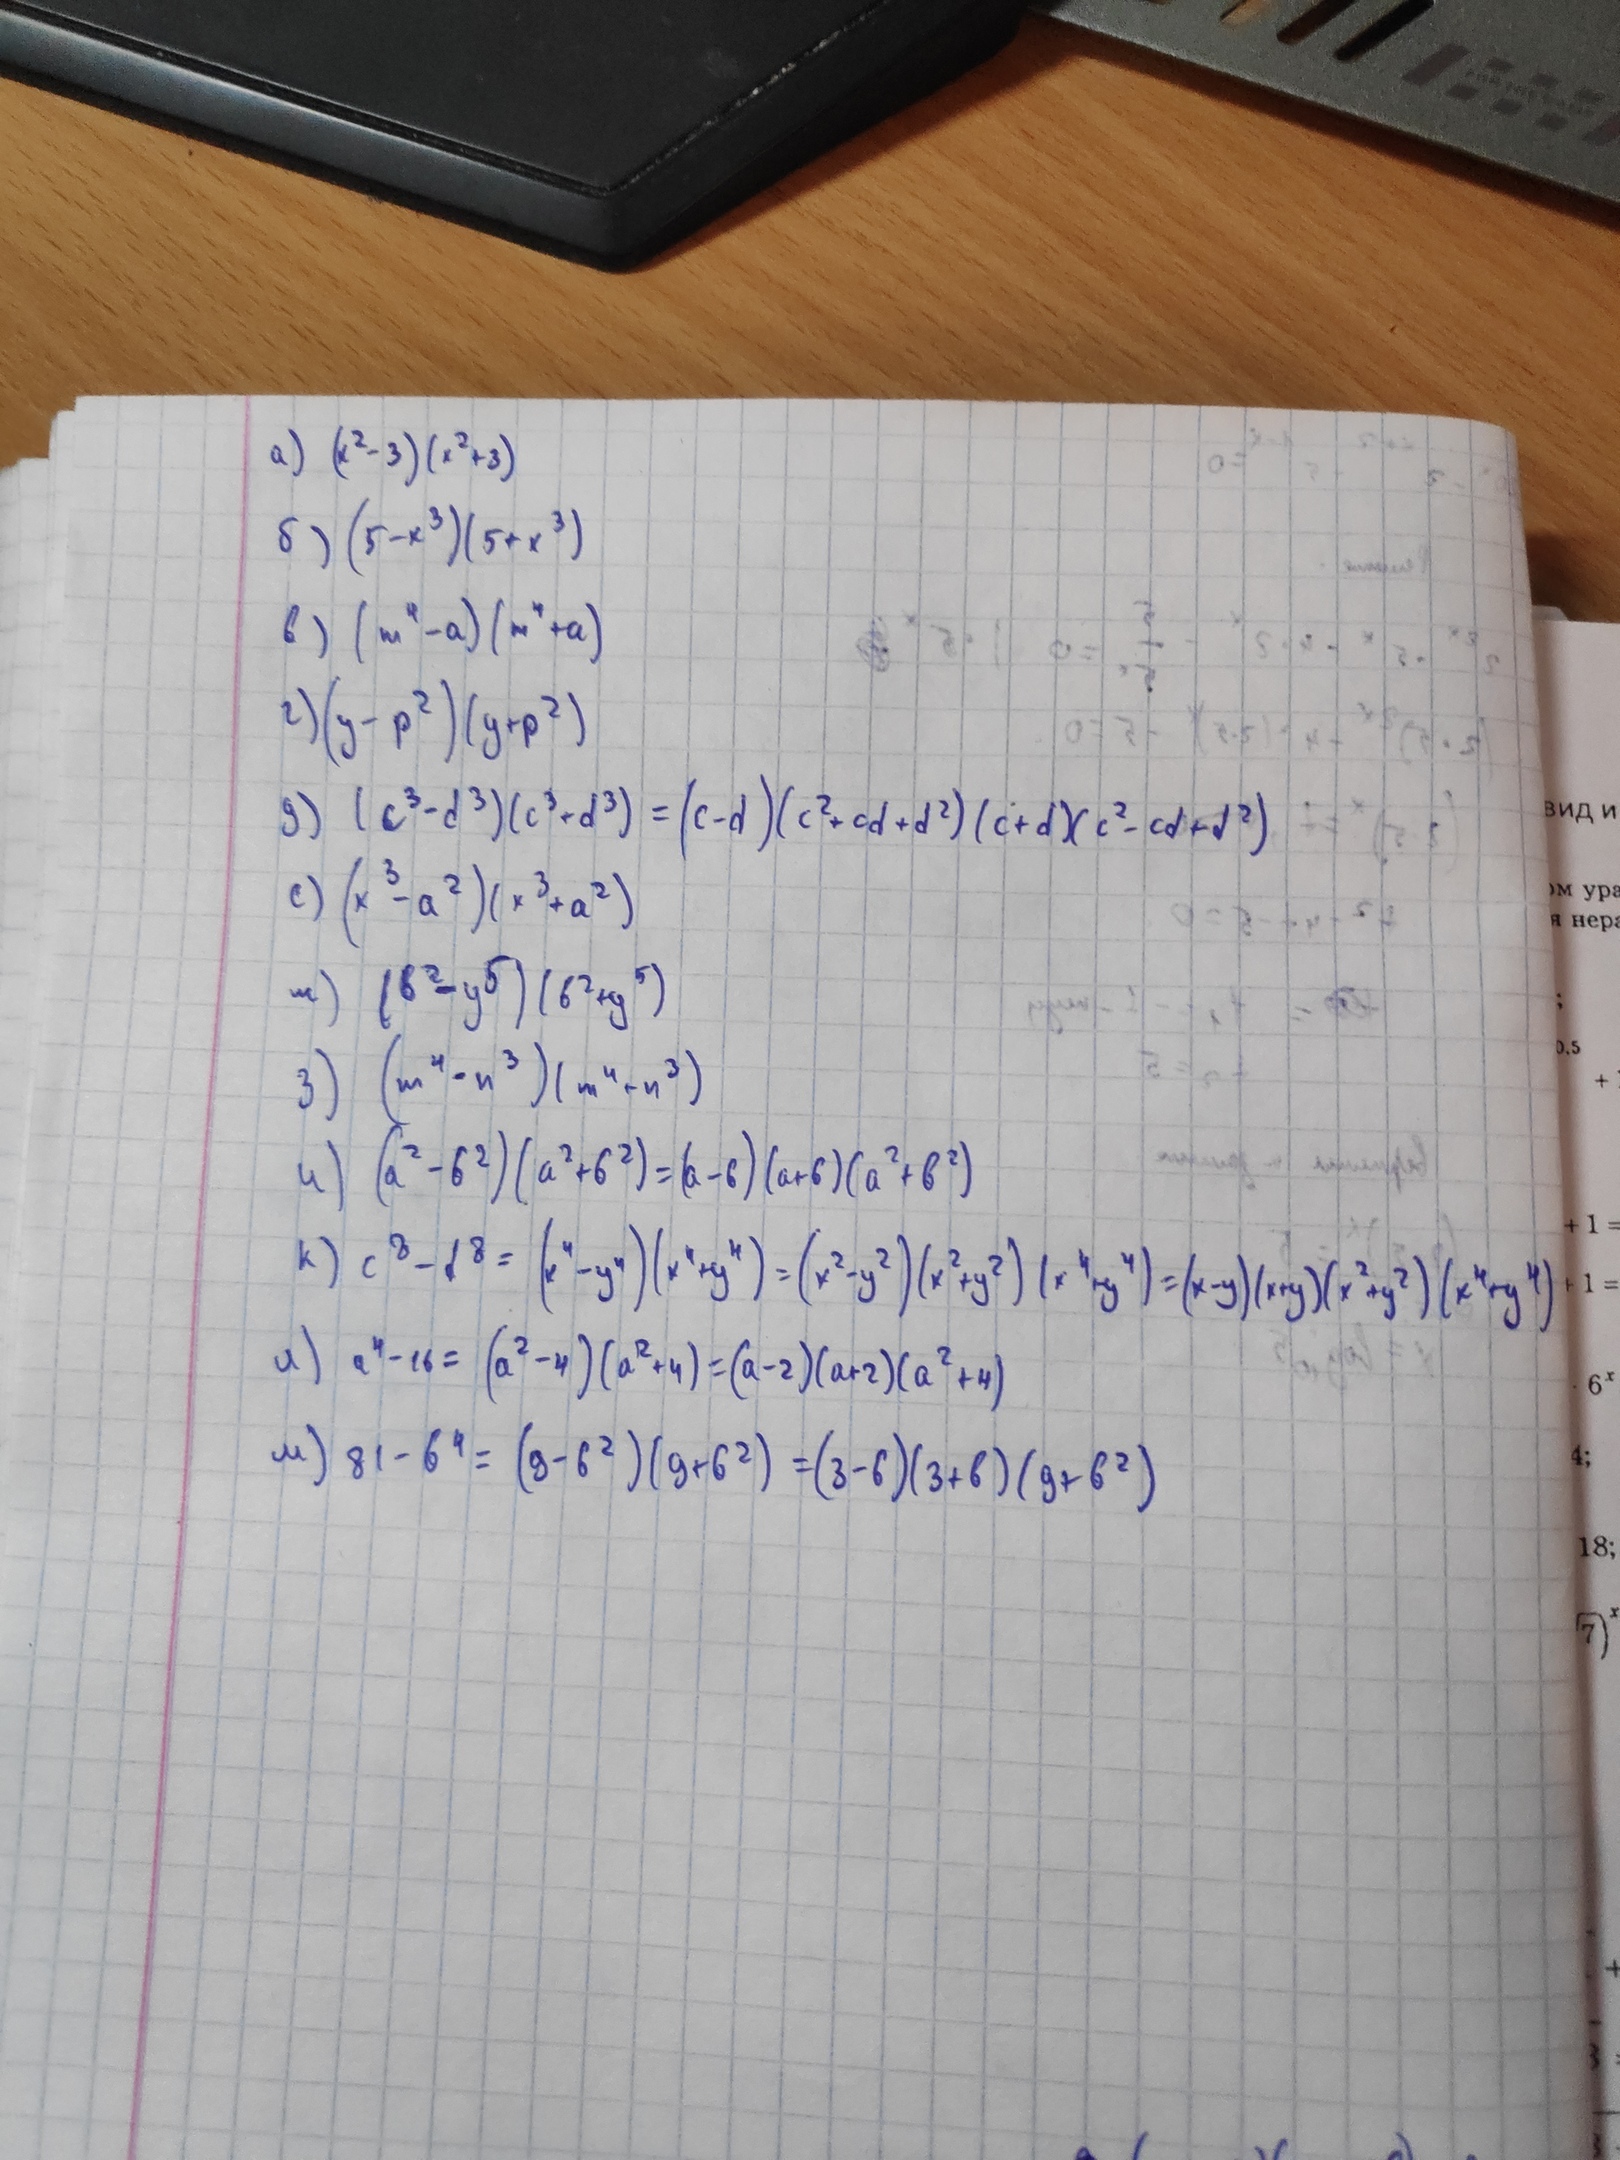 а) (x²-3)(x²+3)
б) (5-x³)(5+x³)
в) (m⁴-a)(m⁴+a)
г) (y-p²)(y+p²)
д) (c³-d³)(c³+d³) = (c-d)(c²+cd+d²)(c+d)(c²-cd+d²)
е) (x³-a²)(x³+a²)
ж) (b²-y⁵)(b²+y⁵)
з) (m⁴-n³)(m⁴-n³)
и) (a²-b²)(a²+b²) = (a-b)(a+b)(a²+b²)
к) c⁸-d⁸ = (x⁴-y⁴)(x⁴+y⁴) = (x²-y²)(x²+y²)(x⁴+y⁴) = (x-y)(x+y)(x²+y²)(x⁴+y⁴)
л) a⁴-16 = (a²-4)(a²+4) = (a-2)(a+2)(a²+4)
м) 81-b⁴ = (9-b²)(9+b²) = (3-b)(3+b)(9+b²)
вид и
ом ура
я нера
;
0,5
+ 1
+ 1 =
+ 1 =
· 6ˣ
4;
18;
7)ˣ
+
3 =